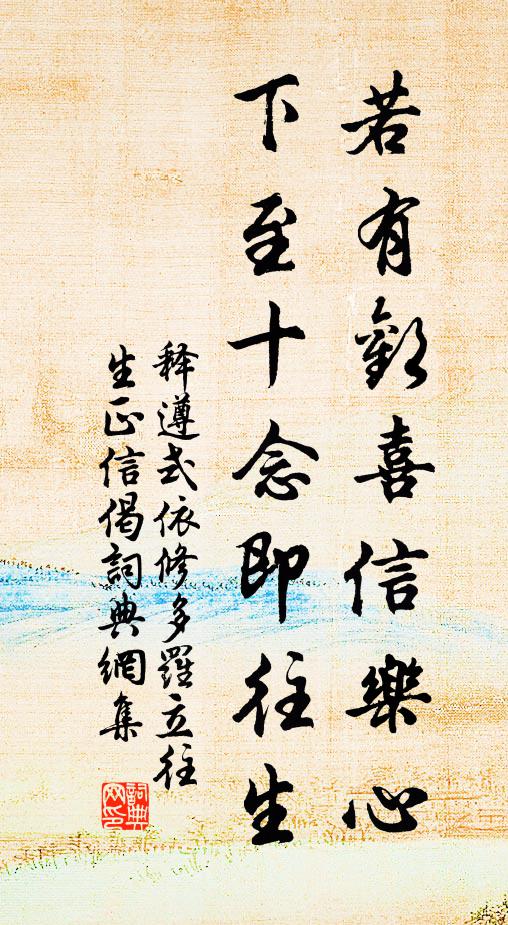 若有歡喜信樂心
下至十念即往生
释遵式依修多羅立往
生正信偈詞典網集
詞典
网印